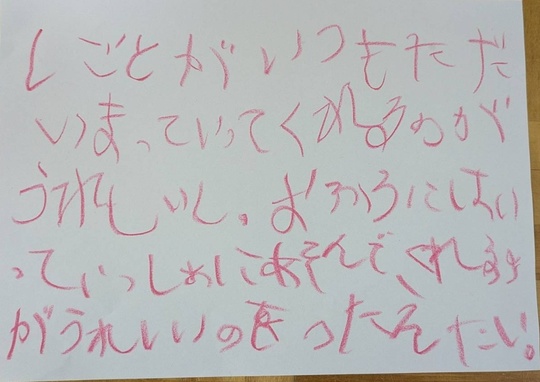 しごとがいつもただ
いまっていってくれるのが
うれしいし。おふろにはい
っていっしょにあそんでくれるの
がうれしいのをつたえたい。